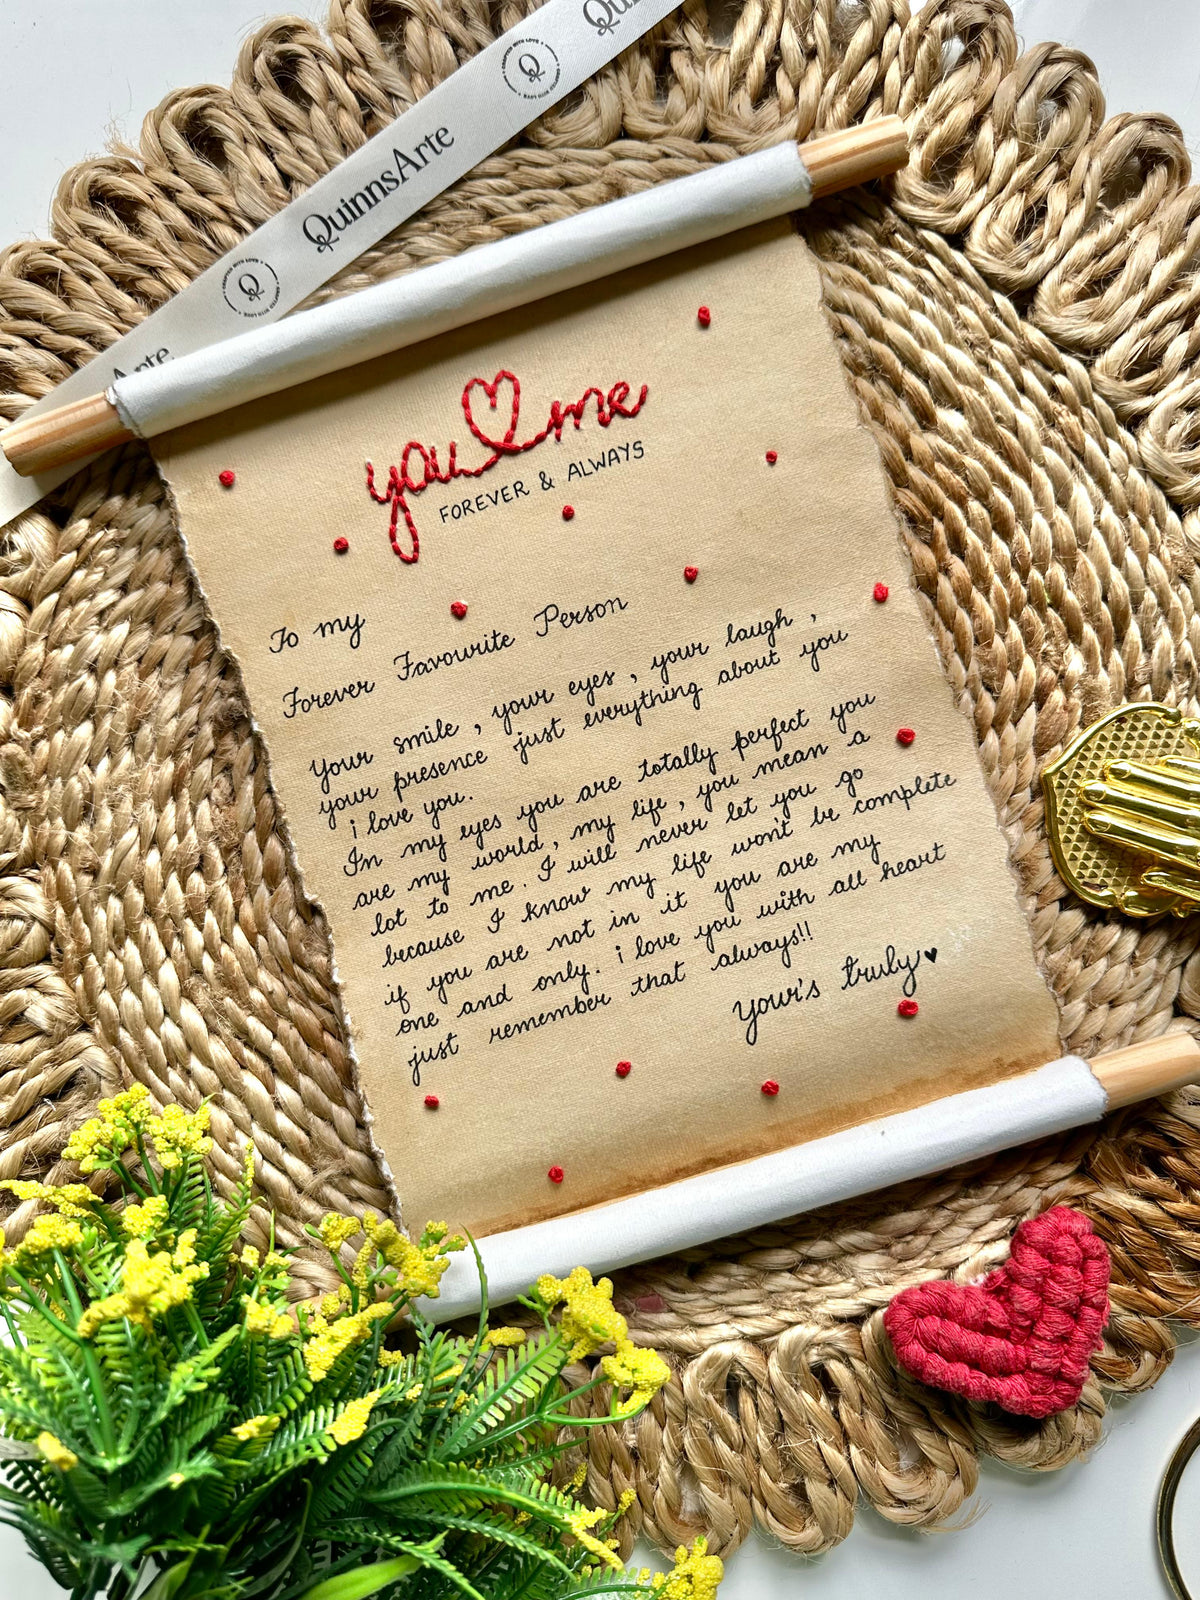 Quinn
QuinnsArte
Q
CRAFTED WITH LOVE
Q
Arte
you me
FOREVER & ALWAYS
To my
Forever Favourite Person
Your smile , your eyes , your laugh ,
your presence just everything about you
i love you.
In my eyes you are totally perfect you
are my world , my life , you mean a
lot to me . I will never let you go
because I know my life won't be complete
if you are not in it you are my
one and only. i love you with all heart
just remember that always!!
Your's truly